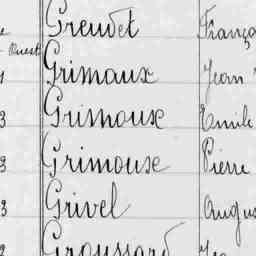 Greudet Franço
Ouest
Grimaux Jean
3 Grimoux Emile
3 Grimouse Pierre
3 Grivel Augus
Groussard